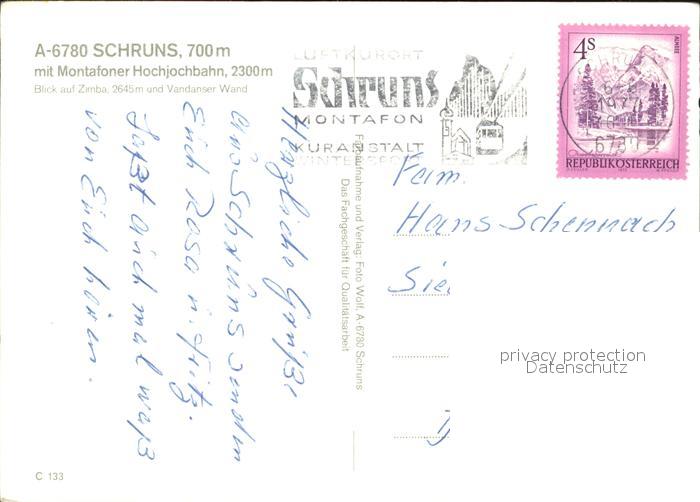 A-6780 SCHRUNS, 700 m
mit Montafoner Hochjochbahn, 2300 m
Blick auf Zimba, 2645 m und Vandanser Wand
LUFTKURORT
Schruns
MONTAFON
KURANSTALT
WINTERSPORT
4 S
ALMSEE
REPUBLIK ÖSTERREICH
Herzliche Grüße
aus Schruns senden
Euch Rosa u. Fritz.
Laßt auch mal was
von Euch hören.
Farbaufnahme und Verlag: Foto Wolf, A-6780 Schruns
Das Fachgeschäft für Qualitätsarbeit
Fam.
Hans Schennach
privacy protection
Datenschutz
C 133